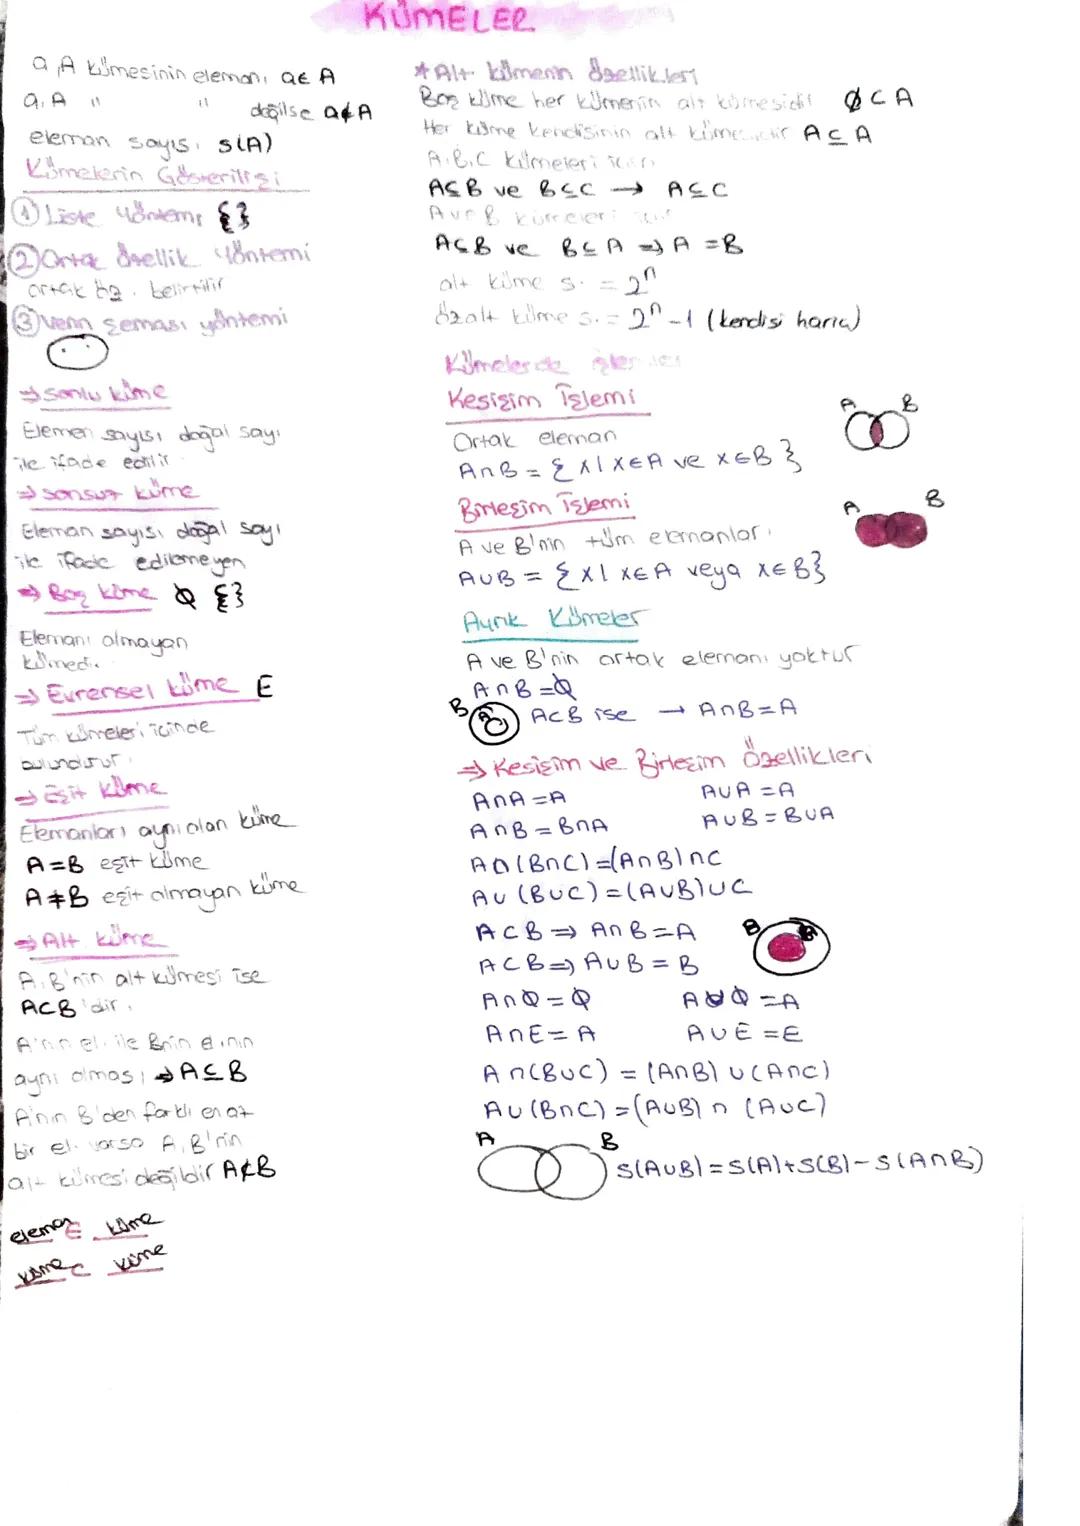 KÜMELER
a, A kümesinin elemanı a∈A
a, A " " değilse a∉A
eleman sayısı s(A)
Kümelerin Gösterilişi
① Liste yöntemi { }
② Ortak özellik yöntemi
ortak öz. belirtilir
③ Venn şeması yöntemi
⇒ Sonlu küme
Eleman sayısı doğal sayı
ile ifade edilir
⇒ Sonsuz küme
Eleman sayısı doğal sayı
ile ifade edilemeyen
⇒ Boş küme ∅ { }
Elemanı olmayan
kümedir.
⇒ Evrensel küme E
Tüm kümeleri içinde
bulundurur.
⇒ Eşit küme
Elemanları aynı olan küme
A=B eşit küme
A≠B eşit olmayan küme
⇒ Alt küme
A, B'nin alt kümesi ise
A⊂B'dir.
A'nın el. ile B'nin el.nın
aynı olması → A⊆B
A'nın B'den farklı en az
bir el. varsa A, B'nin
alt kümesi değildir A⊄B
eleman ∈ küme
küme ⊂ küme
* Alt kümenin özellikleri
Boş küme her kümenin alt kümesidir ∅⊂A
Her küme kendisinin alt kümesidir A⊆A
A,B,C kümeleri için
A⊆B ve B⊆C → A⊆C
A ve B kümeleri için
A⊆B ve B⊆A ⇒ A=B
alt küme s. = 2ⁿ
özalt küme s. = 2ⁿ-1 (kendisi hariç)
Kümelerde işlemler
Kesişim İşlemi
A B
Ortak eleman
A∩B = {x| x∈A ve x∈B}
Birleşim İşlemi
A B
A ve B'nin tüm elemanları
A∪B = {x| x∈A veya x∈B}
Ayrık Kümeler
A ve B'nin ortak elemanı yoktur
A∩B=∅
B A A⊂B ise → A∩B=A
⇒ Kesişim ve Birleşim Özellikleri
A∩A=A A∪A=A
A∩B=B∩A A∪B=B∪A
A∩(B∩C)=(A∩B)∩C
A∪(B∪C)=(A∪B)∪C
A⊂B ⇒ A∩B=A B
A⊂B ⇒ A∪B=B
A∩∅=∅ A∪∅=A
A∩E=A A∪E=E
A∩(B∪C) = (A∩B)∪(A∩C)
A∪(B∩C)=(A∪B)∩(A∪C)
A B
s(A∪B)=s(A)+s(B)-s(A∩B)